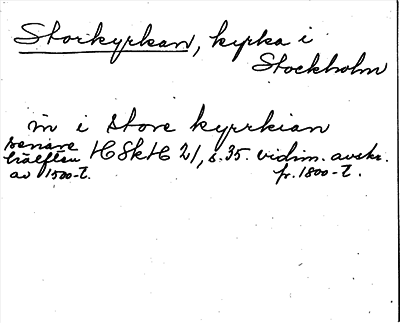 Storkyrkan, kyrka i
Stockholm
in i store kyrkian
senare
hälften HSkH 21, s. 35. vidim. avskr.
av 1500-t. fr. 1800-t.